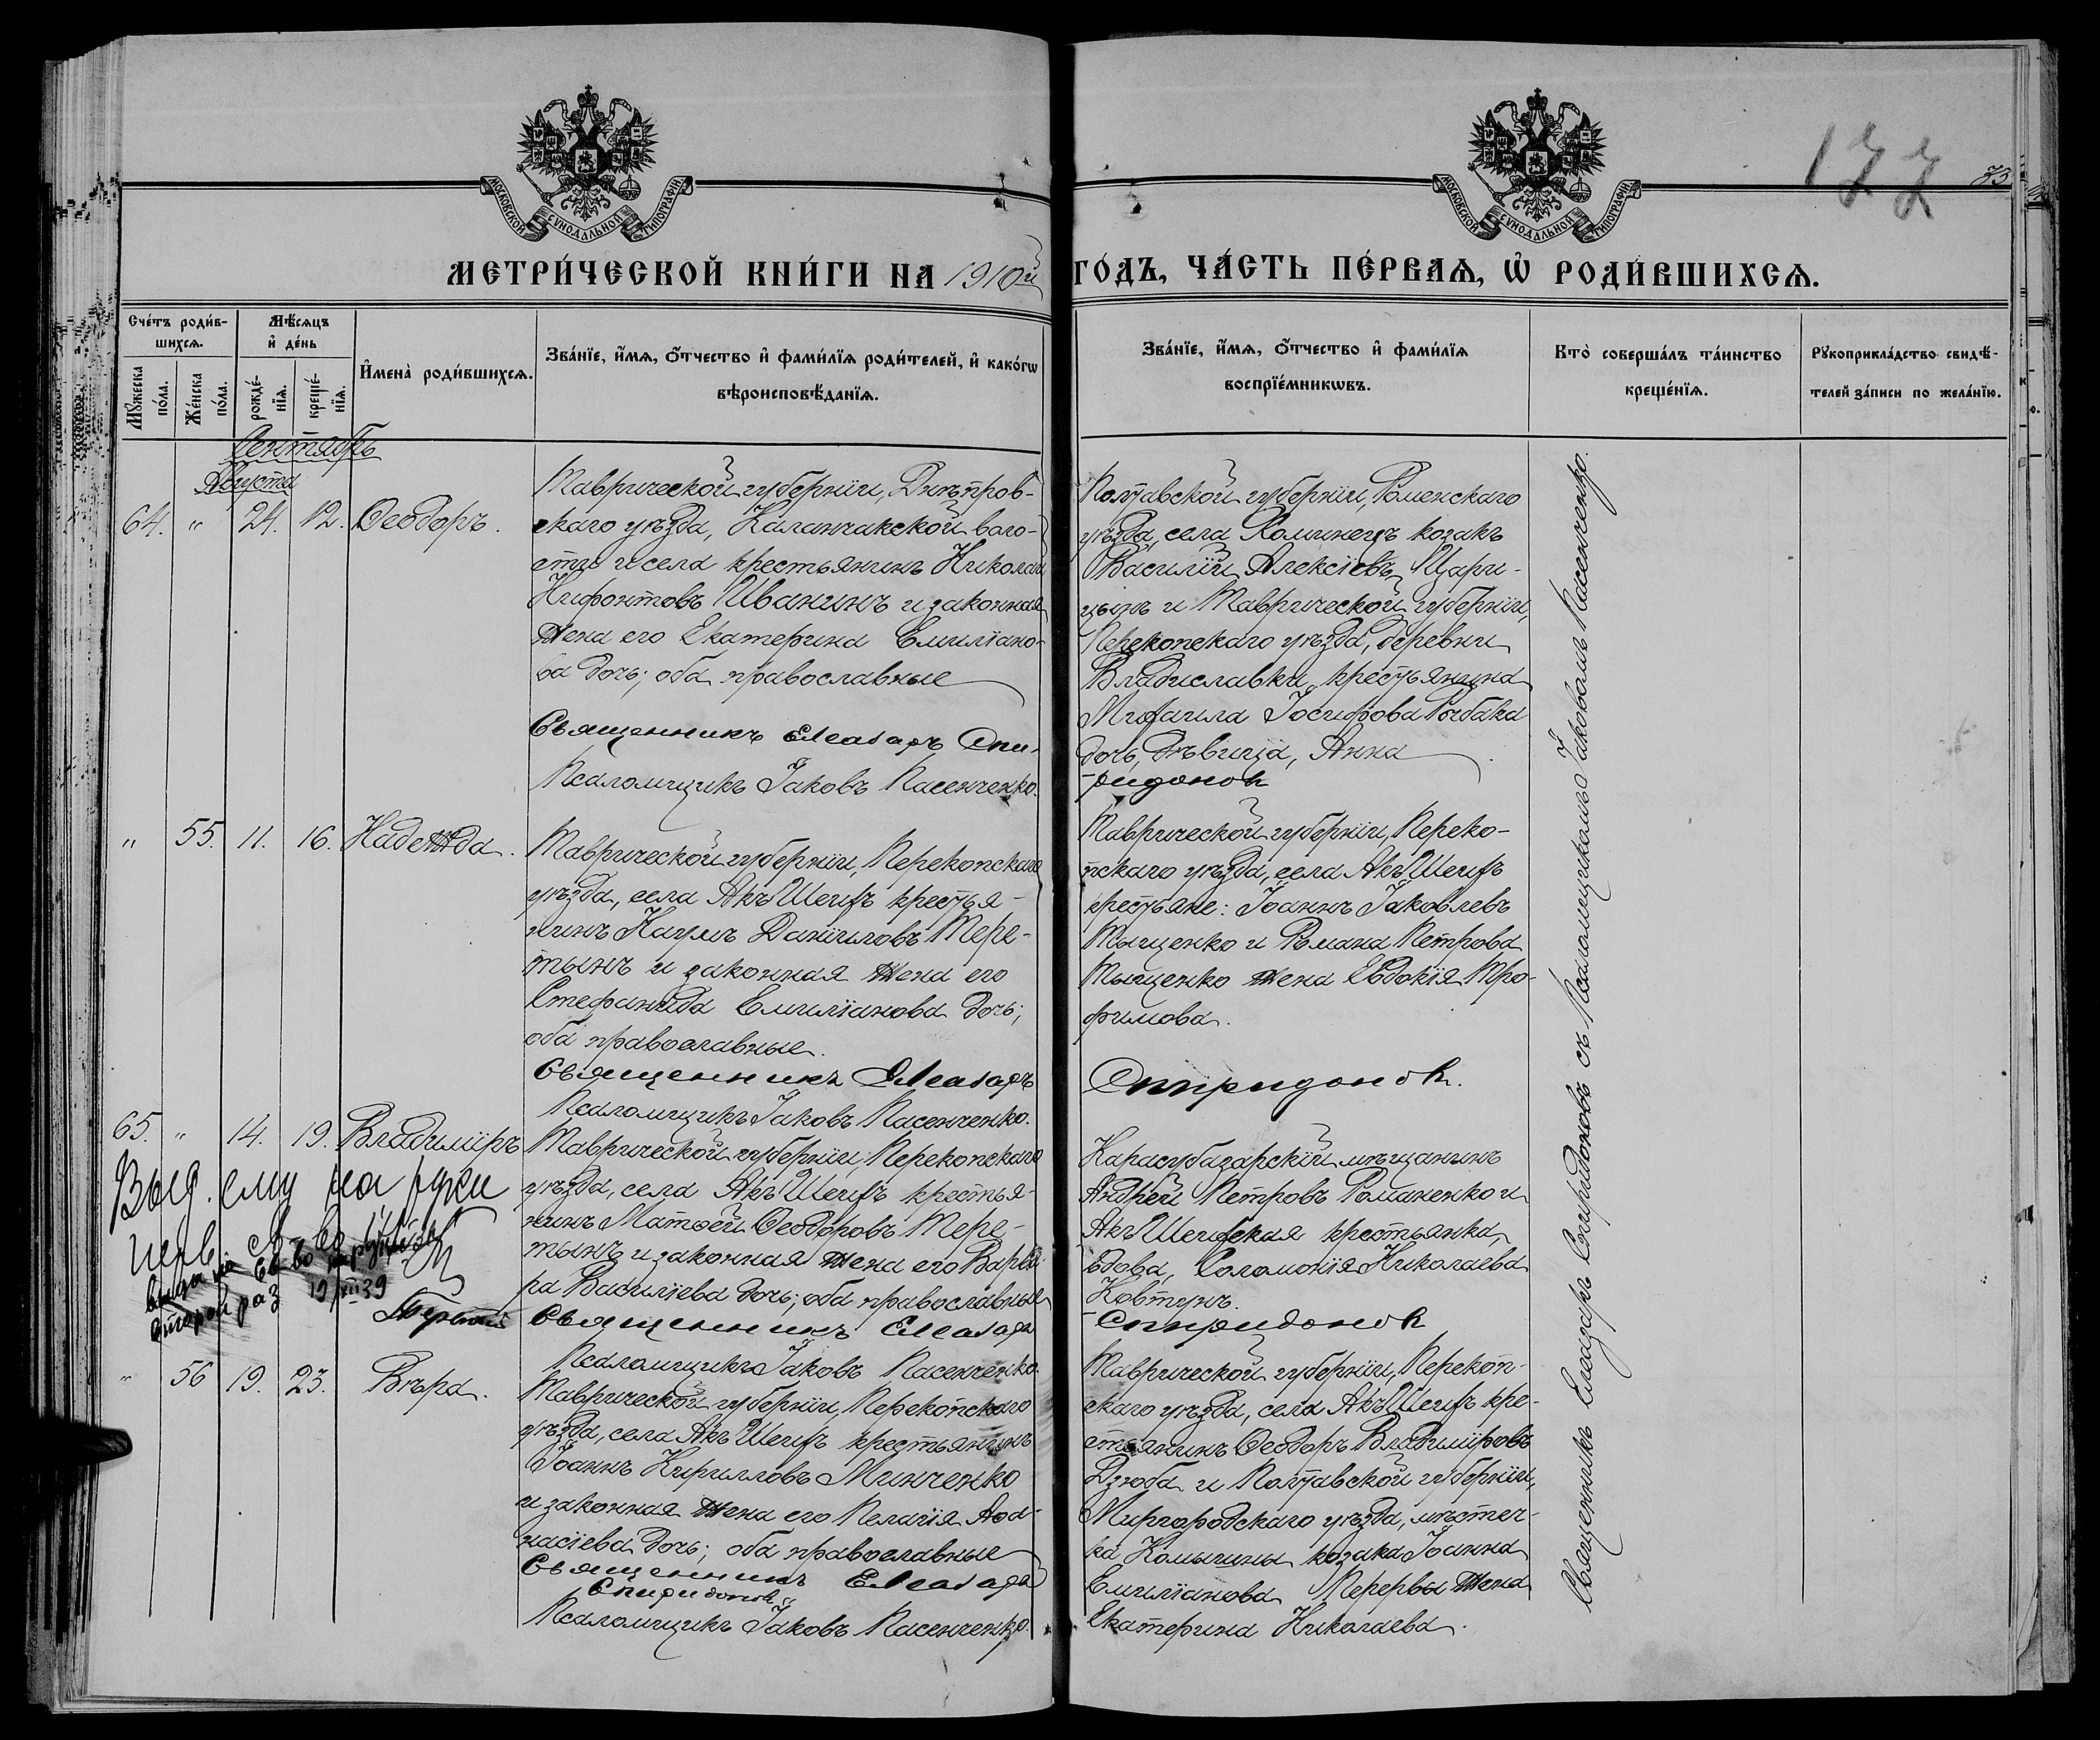 МОСКОВСКОЙ СѴНОДАЛЬНОЙ ТИПОГРАФІИ
МОСКОВСКОЙ СѴНОДАЛЬНОЙ ТИПОГРАФІИ
177
73
МЕТРИ́ЧЕСКОЙ КНИ́ГИ НА 1910й
ГО́ДЪ, ЧА́СТЬ ПЕ́РВАѦ, Ѽ РОДИ́ВШИХСѦ.
Сче́тъ роди́в-
шихсѧ.
Мꙋ́жеска по́ла.
Же́нска по́ла.
Мѣ́сѧцъ
и҆ де́нь
рожде́-
нїѧ.
креще́-
нїѧ.
И҆мена̀ роди́вшихсѧ.
Зва́нїе, и҆́мѧ, о҆́тчество и҆ фами́лїѧ роди́телей, и҆ како́гѡ
вѣроисповѣ́данїѧ.
Зва́нїе, и҆́мѧ, о҆́тчество и҆ фами́лїѧ
воспрїе́мникѡвъ.
Кто̀ соверша́лъ та́инство
креще́нїѧ.
Рꙋкоприкла́дство свидѣ́-
телей за́писи по жела́нїю.
Сентябрь
Августа
64. " 24. 12. Ѳеодоръ.
Таврической губерніи, Днѣпров-
скаго уѣзда, Каланчакской воло-
сти и села крестьянинъ Николай
Нифонтовъ Иванинъ и законная
жена его Екатерина Емиліано-
ва дочь; оба православные
Священникъ Елеазаръ Спи-
Псаломщикъ Іаковъ Пасенченко.
Полтавской губерніи, Роменскаго
уѣзда, села Хоминецъ козакъ
Василій Алексіевъ Цари-
цынъ и Таврической губерніи,
Перекопскаго уѣзда, деревни
Владиславки, крестьянина
Михаила Іосифова Рыбака
дочь, дѣвица, Анна
ридоновъ
" 55. 11. 16. Надежда.
Таврической губерніи, Перекопскаго
уѣзда, села Акъ Шеихъ крестья-
нинъ Наумъ Даниловъ Тере-
тынъ и законная жена его
Стефанида Емиліанова дочь;
оба православные.
Священникъ Елеазаръ
Псаломщикъ Іаковъ Пасенченко.
Таврической губерніи, Переко-
пскаго уѣзда, села Акъ Шеихъ
крестьяне: Іоаннъ Іаковлевъ
Тыщенко и Романа Петрова
Тыщенко жена Евдокія Тро-
фимова.
Спиридоновъ.
65. " 14. 19. Владиміръ
Выд. ему на руки
второй раз 19/XII 39
Таврической губерніи, Перекопскаго
уѣзда, села Акъ Шеихъ крестья-
нинъ Матѳей Ѳеодоровъ Тере-
тынъ и законная жена его Варва-
ра Василіева дочь; оба православные
Священникъ Елеазаръ
Псаломщикъ Іаковъ Пасенченко.
Карасубазарскій мѣщанинъ
Андрей Петровъ Романенко и
Акъ Шеихская крестьянка,
вдова, Соломонія Николаева
Ковтунъ.
Спиридоновъ
" 56 19. 23. Вѣра.
Таврической губерніи, Перекопскаго
уѣзда, села Акъ Шеихъ крестьянинъ
Іоаннъ Кирилловъ Минченко
и законная жена его Пелагія Аѳа-
насіева дочь; оба православные
Священникъ Елеазаръ
Спиридоновъ
Псаломщикъ Іаковъ Пасенченко.
Таврической губерніи, Перекоп-
скаго уѣзда, села Акъ Шеихъ кре-
стьянинъ Ѳеодоръ Владиміровъ
Дзюба и Полтавской губерніи,
Миргородскаго уѣзда, мѣстеч-
ка Комышны козака Іоанна
Емиліанова Перервы жена
Екатерина Николаева.
Священникъ Елеазаръ Спиридоновъ съ Псаломщикомъ Іаковомъ Пасенченко.